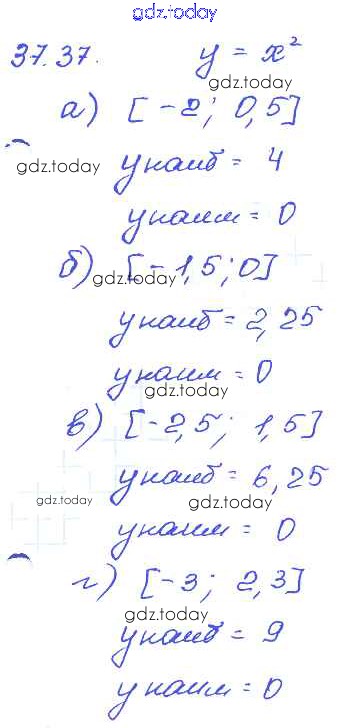 gdz.today
37.37. y = x²
gdz.today
а) [-2; 0,5]
gdz.today
yнаиб = 4
yнаим = 0
б) [-1,5; 0]
gdz.today
yнаиб = 2,25
yнаим = 0
gdz.today
в) [-2,5; 1,5]
yнаиб = 6,25
gdz.today gdz.today
yнаим = 0
г) [-3; 2,3]
gdz.today
yнаиб = 9
yнаим = 0
gdz.today